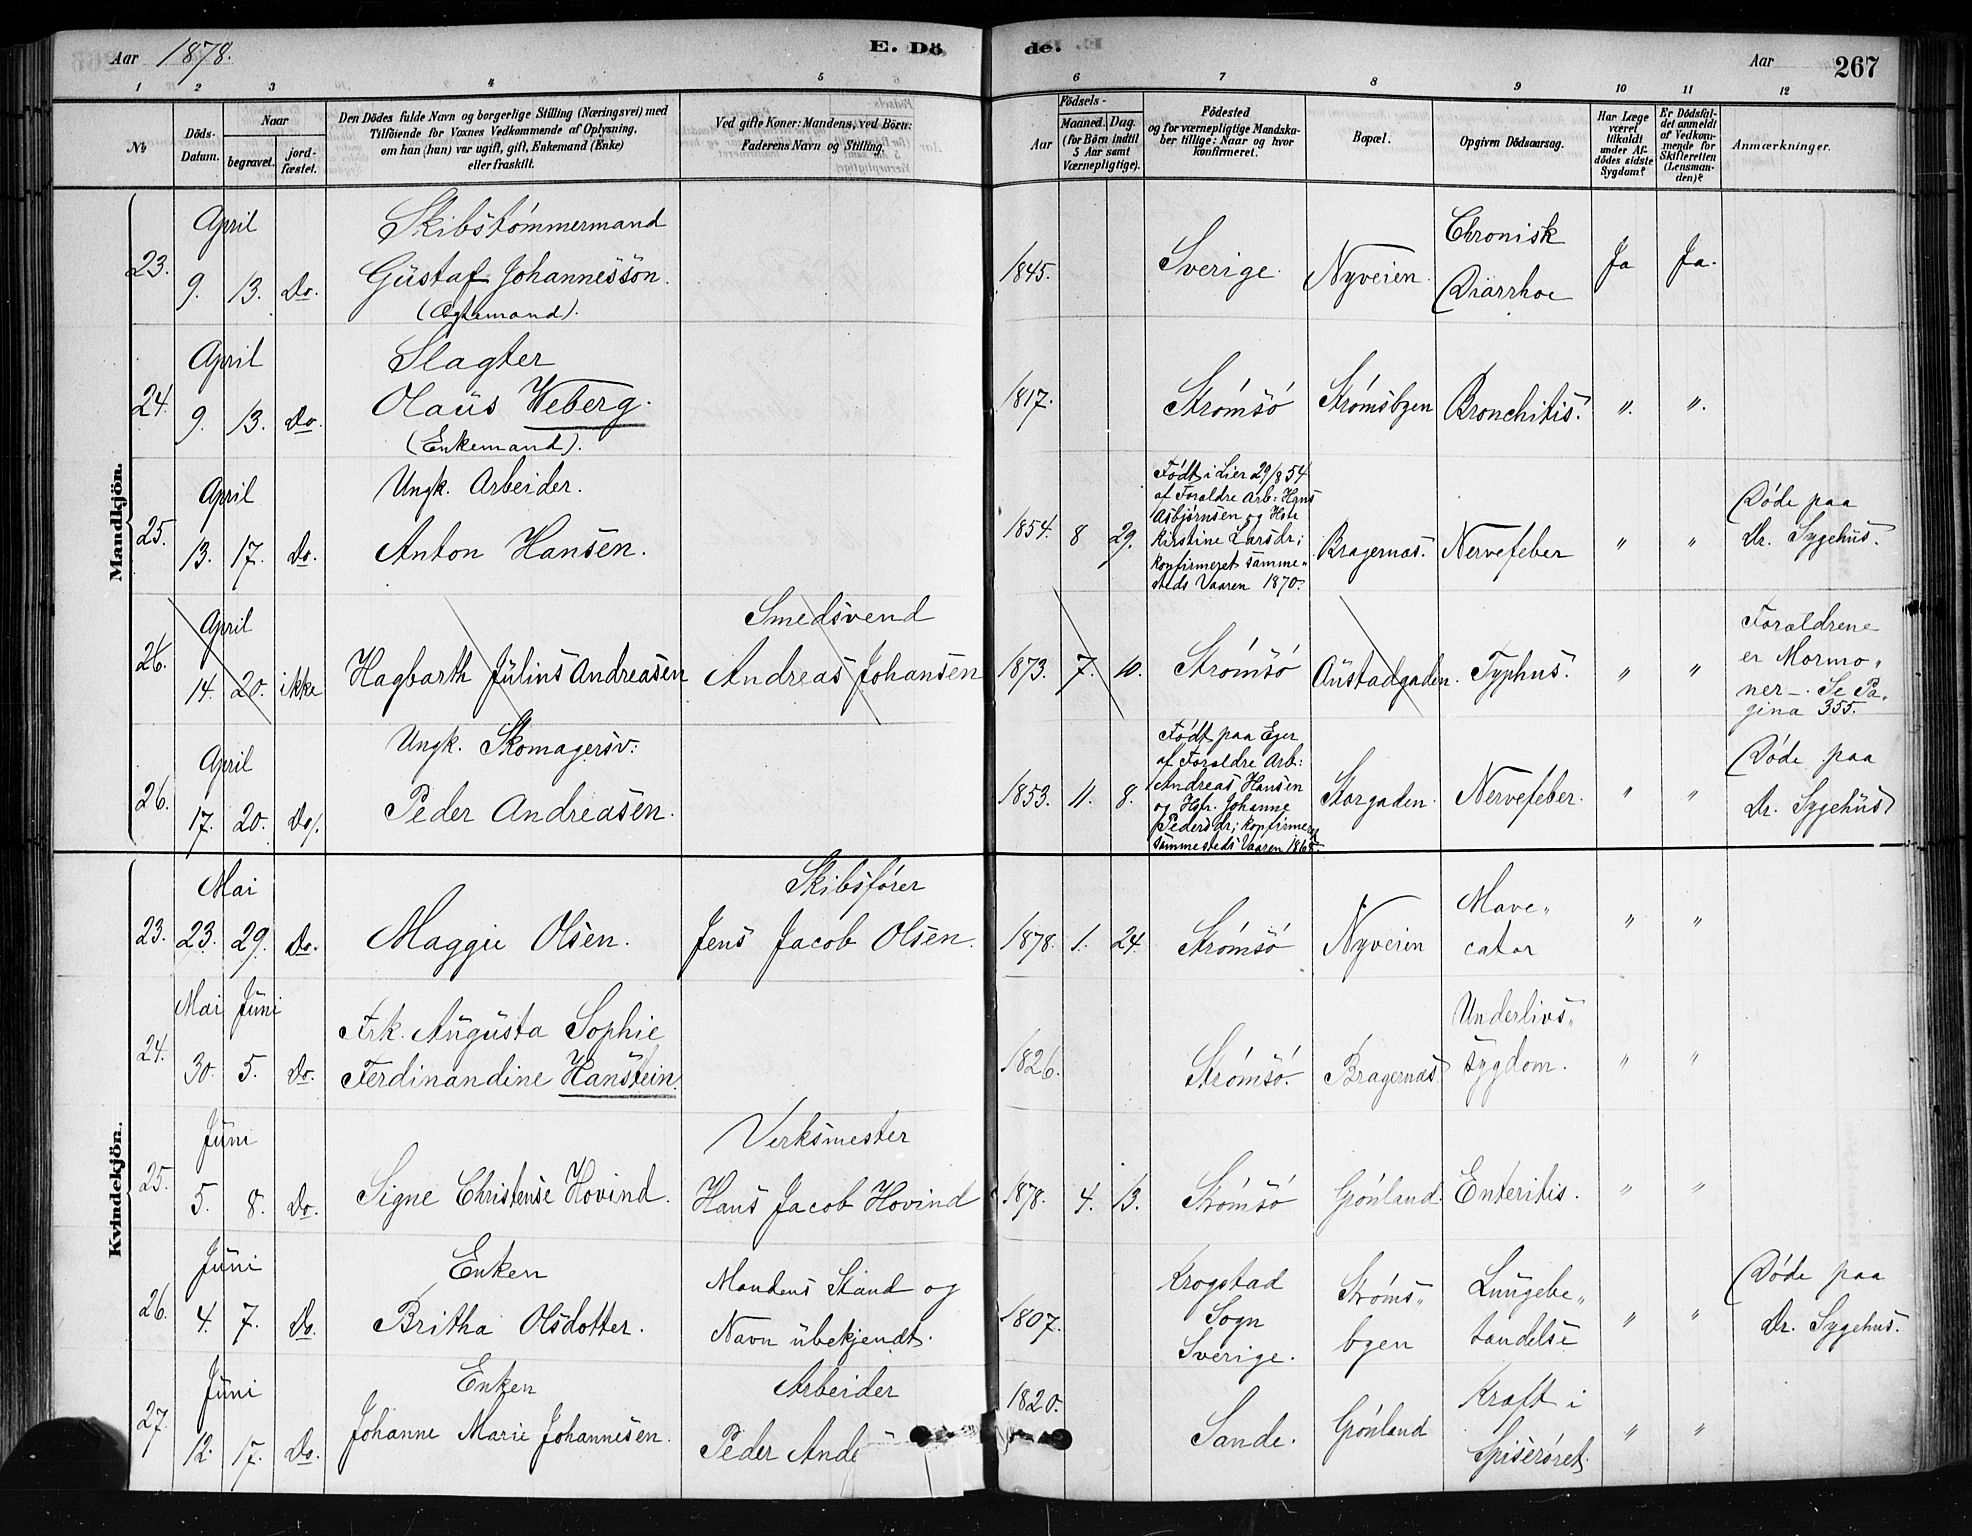 Aar 1878. E. Dö de. Aar 267
1 2 3 4 5 6 7 8 9 10 11 12
No
Döds-Datum.
Naar
begravet.
jord-fæstet.
Den Dödes fulde Navn og borgerlige Stilling (Næringsvei) med
Tilföiende for Voxnes Vedkommende af Oplysning,
om han (hun) var ugift, gift, Enkemand (Enke)
eller fraskilt.
Ved gifte Koner: Mandens, ved Börn:
Faderens Navn og Stilling.
Aar
Födsels-
Maaned. Dag.
(for Börn indtil
5 Aar samt
Værnepligtige).
Födested
og for værnepligtige Mandska-
ber tillige: Naar og hvor
konfirmeret.
Bopæl.
Opgiven Dödsaarsag.
Har Læge
været
tilkaldt
under Af-
dödes sidste
Sygdom?
Er Dödsfal-
det anmeldt
af Vedkom-
mende for
Skifteretten
(Lensman-
den)?
Anmærkninger.
Mandkjön.
April Skibstømmermand Chronisk
23. 9. 13. Do. Gustaf Johannessón. 1845. Sverige. Nyveien. Diarrhoe Ja Ja.
(Ægtemand).
April Slagter
24. 9. 13. Do. Olaus Weberg. 1817. Strømsø Strømsbyen Bronchitis. ". ".
(Enkemand).
April Ungk. Arbeider.
25. 13. 17. Do. Anton Hansen. 1854. 8 29.
Født i Lier 29/8 54
af Forældre Arb: Hans
Asbjørnsen og Hstr
Kirstine Larsdr;
konfirmeret samme„
steds Vaaren 1870.
Bragernæs. Nervefeber " "
Døde paa
Dr. Sygehus.
April Smedsvend
26. 14. 20. ikke Hagbarth Julius Andreasen Andreas Johansen 1873. 7. 10. Strømsø Austadgaden. Typhus. " "
Forældrene
er Mormo„
ner-. Se Pa„
gina 355.
April Ungk. Skomagersv:
26. 17. 20. Do. Peder Andreasen. 1853. 11. 8.
Født paa Eger
af Forældre Arb:
Andreas Hansen
og Hstr. Johanne
Pedersdr; konfirmeret
sammesteds Vaaren
Storgaden. Nervefeber. " "
Døde paa
Dr. Sygehus
Kvindekjön.
Mai Skibsfører Mave„
23. 23. 29. Do. Maggie Olsen. Jens Jacob Olsen. 1878. 1. 24. Strømsø Nyveien catar " "
Mai Juni Frk. Augusta Sophie Underlivs„
24. 30. 5. Do. Ferdinandine Hanstein. 1826. Strømsø. Bragernæs sygdom. " "
Juni Verksmester
25. 5. 8. Do. Signe Christense Hovind. Hans Jacob Hovind 1878. 4. 13. Strømsø Grønland. Enteritis. " "
Juni Enken Mandens Stand og Krogstad Strøms„ Lungebe„ Døde paa
26. 4. 7. Do. Britha Olsdotter. Navn ubekjendt. 1807. Sogn byen tændelse " " Dr. Sygehus.
Sverige.
Juni Enken Arbeider 1820. Kræft i
27. 12. 17. Do. Johanne Marie Johannesen. Peder Ande Sande. Grønland Spiserøret. " "